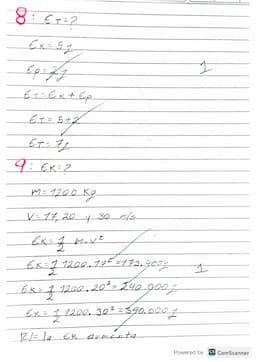 8: ET=?
Ek=5j
Ep=2j
1
ET=Ek+Ep
ET=5+2
ET=7j
9: Ek=?
m=1200 Kg
V=17, 20 y 30 m/s
Ek=1/2 m.v²
Ek=1/2 1200.17²=173.400j
1
Ek=1/2 1200.20²=240.000j
Ek=1/2 1200.30²=540.000j
R/= la Ek aumenta
Powered by CS CamScanner